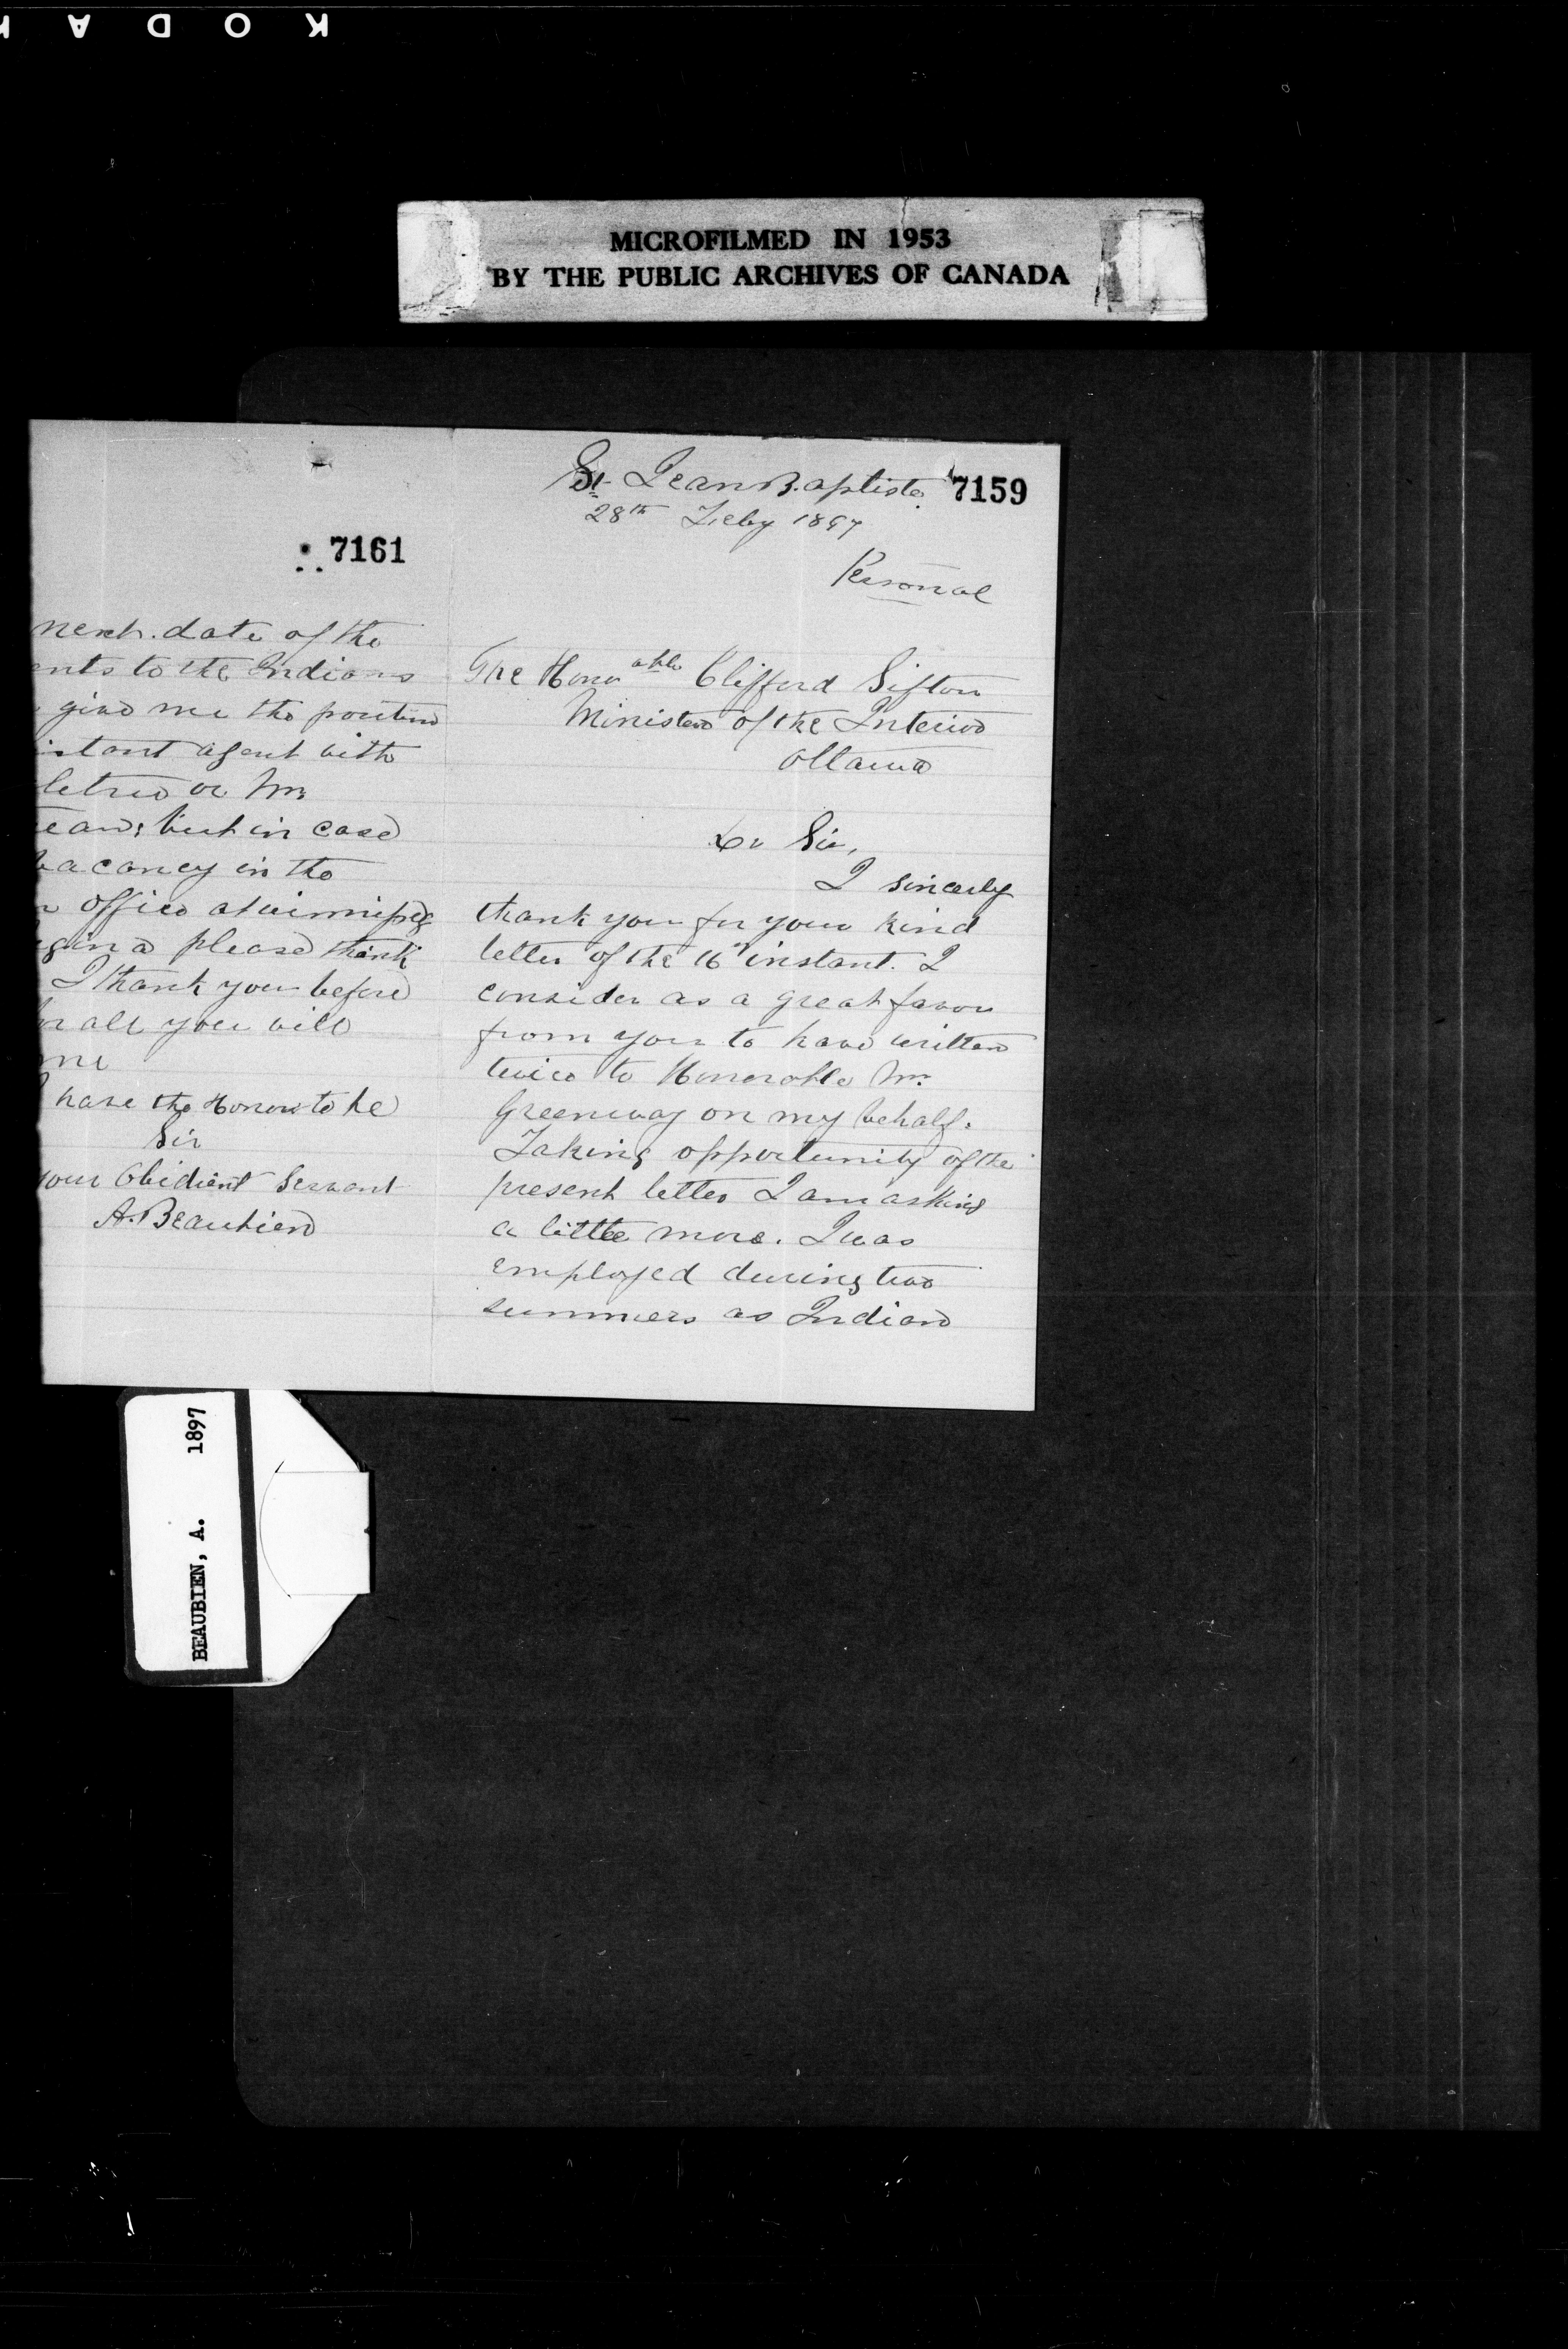 KODAK
MICROFILMED IN 1953
BY THE PUBLIC ARCHIVES OF CANADA
7161
next date of the
ents to the Indians
give me the position
istant agent with
or Mr
ean; but in case
vacancy in the
office at winnipeg
gina please think
I thank you before
for all you will
me
have the Honour to be
Sir
your Obidient Servant
A. Beaubien
St Jean Baptiste 7159
28th Feby 1897
Personal
The Honorable Clifford Sifton
Minister of the Interior
Ottawa
Dr Sir,
I sincerly
thank you for your kind
letter of the 16th instant. I
consider as a great favor
from you to have written
twice to Honorable Mr.
Greenway on my behalf.
Taking opportunity of the
present letter I am asking
a little more. I was
employed during two
summers as Indian
BEAUBIEN, A. 1897